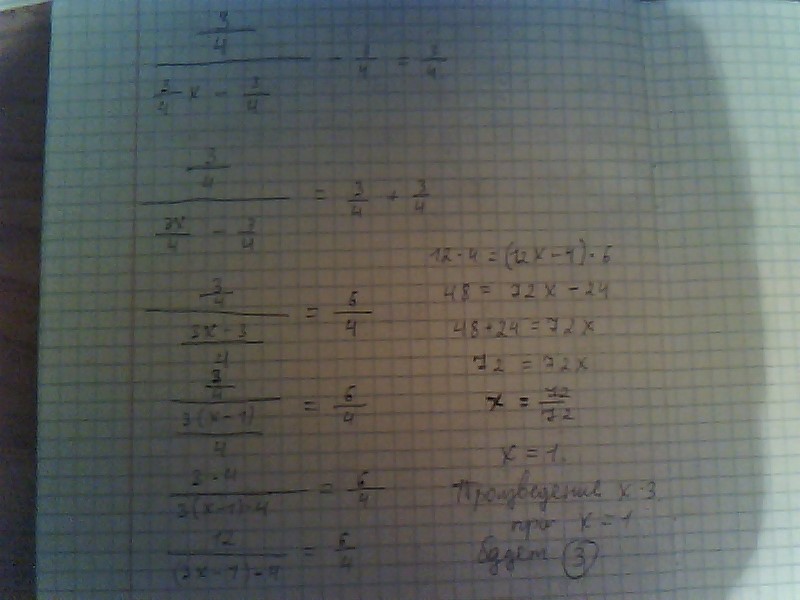 (3/4)/(3/4 x - 3/4) - 3/4 = 3/4
(3/4)/(3x/4 - 3/4) = 3/4 + 3/4
(3/4)/((3x-3)/4) = 6/4
(3/4)/(3(x-1)/4) = 6/4
3·4/3(x-1)·4 = 6/4
12/(3x-1)·4 = 6/4
12·4 = (12x-4)·6
48 = 72x - 24
48+24 = 72x
72 = 72x
x = 72/72
x = 1.
Произведение x·3
при x = 1
будет 3